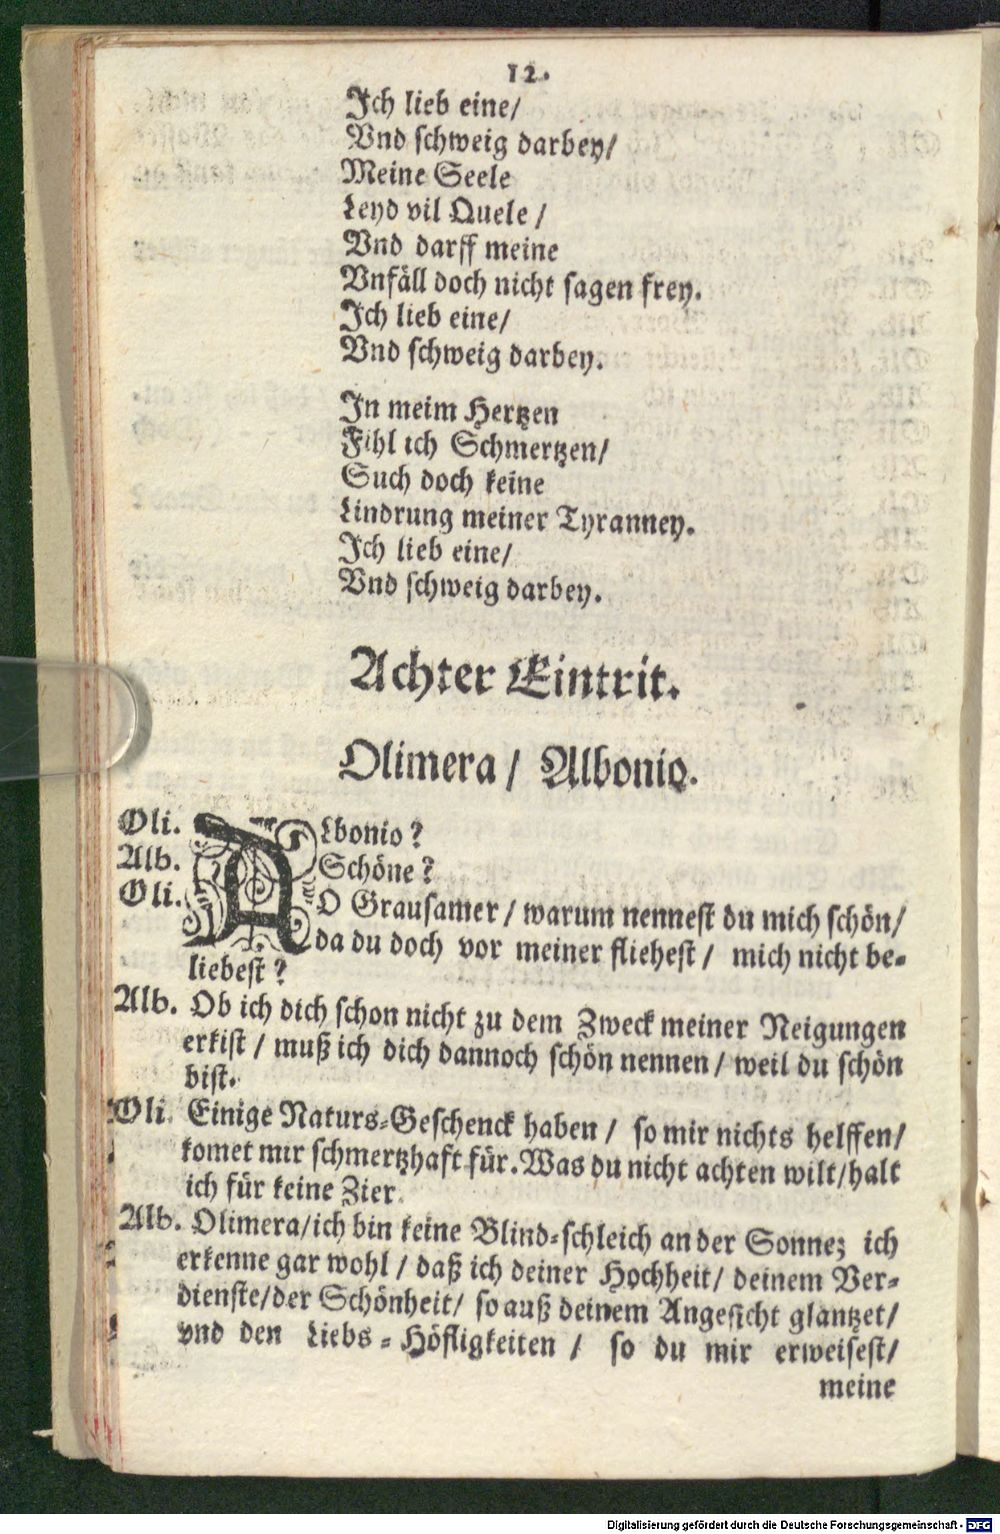 12.
Ich lieb eine/
Vnd schweig darbey/
Meine Seele
Leyd vil Quele /
Vnd darff meine
Vnfäll doch nicht sagen frey.
Ich lieb eine/
Vnd schweig darbey.
In meim Hertzen
Fihl ich Schmertzen/
Such doch keine
Lindrung meiner Tyranney.
Ich lieb eine/
Vnd schweig darbey.
Achter Eintrit.
Olimera / Albonio.
Oli. Albonio ?
Alb. Schöne ?
Oli. O Grausamer / warum nennest du mich schön/
da du doch vor meiner fliehest / mich nicht be-
liebest ?
Alb. Ob ich dich schon nicht zu dem Zweck meiner Neigungen
erkist / muß ich dich dannoch schön nennen / weil du schön
bist.
Oli. Einige Naturs-Geschenck haben / so mir nichts helffen/
komet mir schmertzhaft für. Was du nicht achten wilt/halt
ich für keine Zier.
Alb. Olimera/ich bin keine Blind-schleich an der Sonne; ich
erkenne gar wohl / daß ich deiner Hochheit/ deinem Ver-
dienste/der Schönheit/ so auß deinem Angesicht glantzet/
vnd den Liebs-Höfligkeiten / so du mir erweisest/
meine
Digitalisierung gefördert durch die Deutsche Forschungsgemeinschaft - DFG